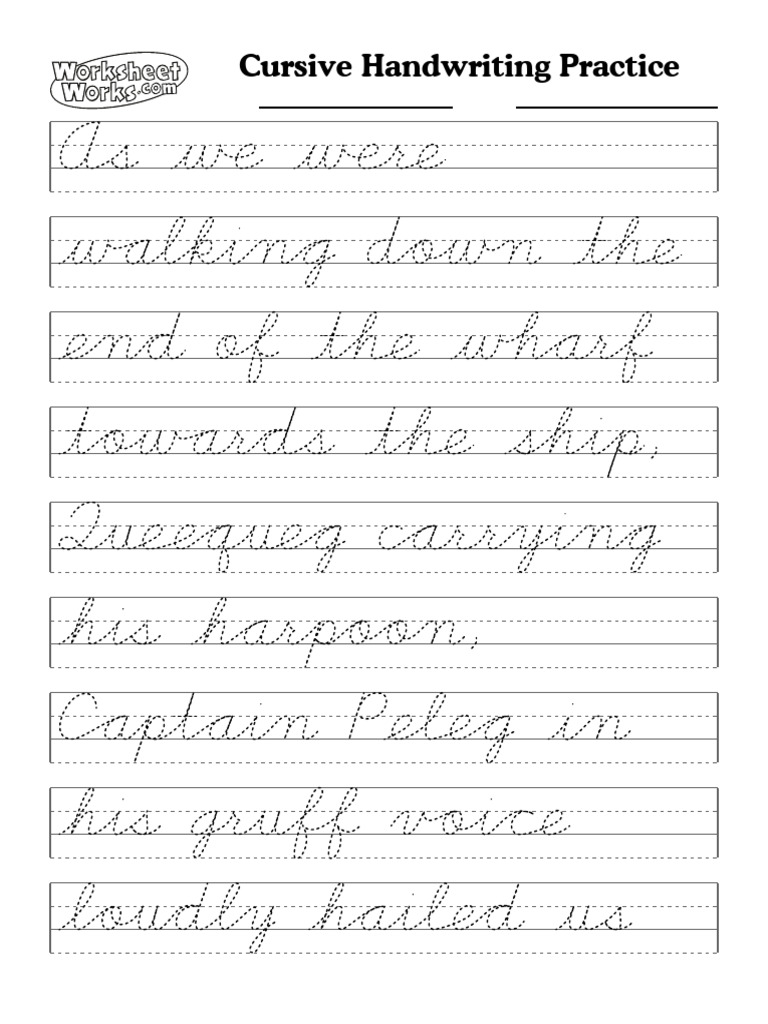 Worksheet
Works.com
Cursive Handwriting Practice
As we were
walking down the
end of the wharf
towards the ship,
Queequeg carrying
his harpoon,
Captain Peleg in
his gruff voice
loudly hailed us